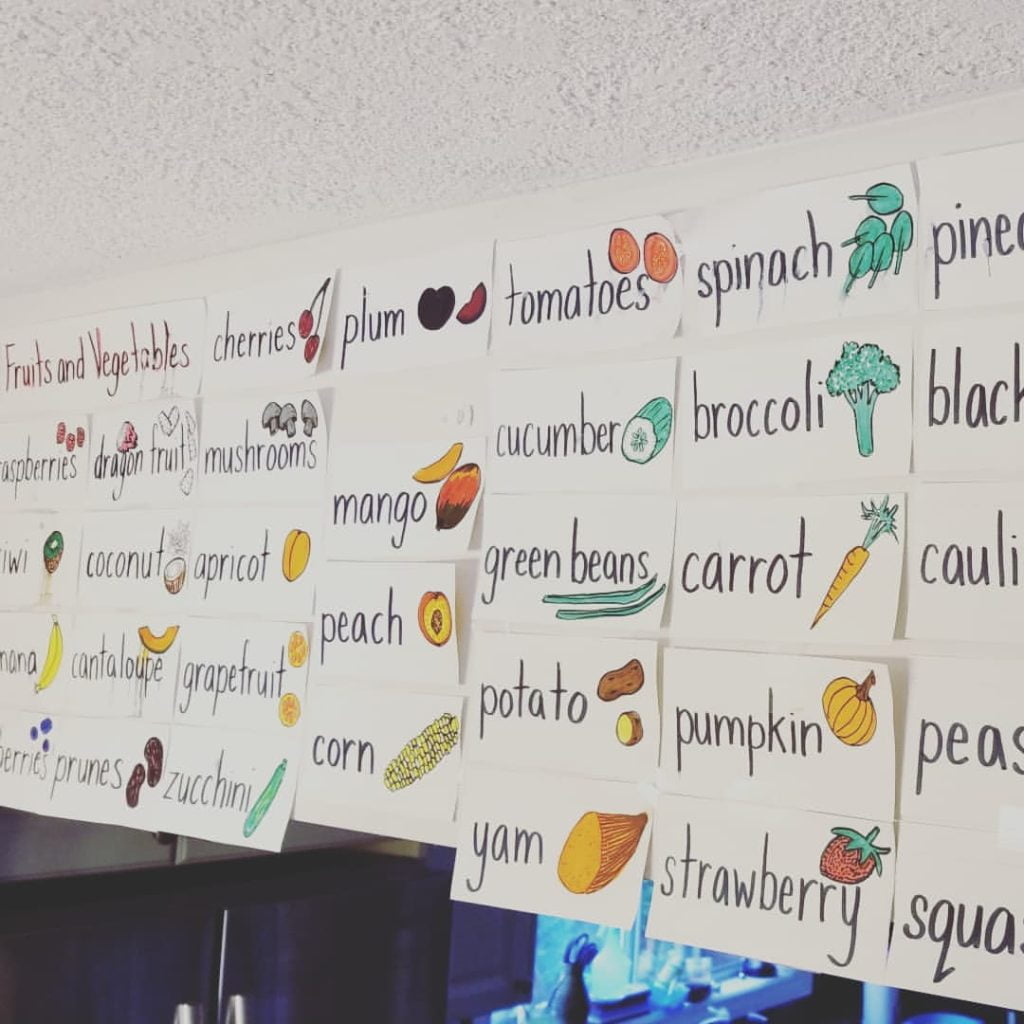 Fruits and Vegetables
cherries
plum
tomatoes
spinach
pinea
raspberries
dragon fruit
mushrooms
mango
cucumber
broccoli
black
iwi
coconut
apricot
peach
green beans
carrot
cauli
nana
cantaloupe
grapefruit
corn
potato
pumpkin
peas
berries
prunes
zucchini
yam
strawberry
squas